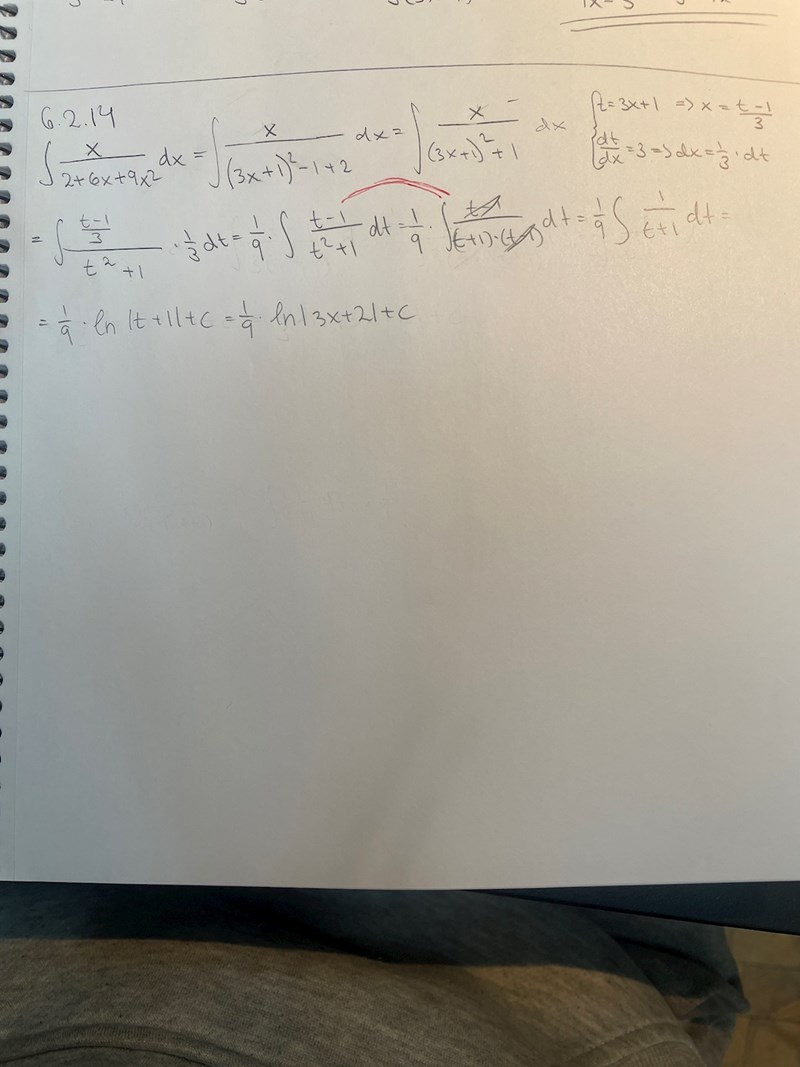 6.2.14
∫ x/(2+6x+9x²) dx = ∫ x/((3x+1)²-1+2) dx = ∫ x/((3x+1)²+1) dx { t=3x+1 => x = (t-1)/3
dt/dx = 3 => dx = 1/3 · dt
= ∫ ((t-1)/3)/(t²+1) · 1/3 dt = 1/9 · ∫ (t-1)/(t²+1) dt = 1/9 · ∫ (t-1)/((t+1)·(t-1)) dt = 1/9 ∫ 1/(t+1) dt =
= 1/9 · ln |t+1|+C = 1/9 · ln|3x+2|+C